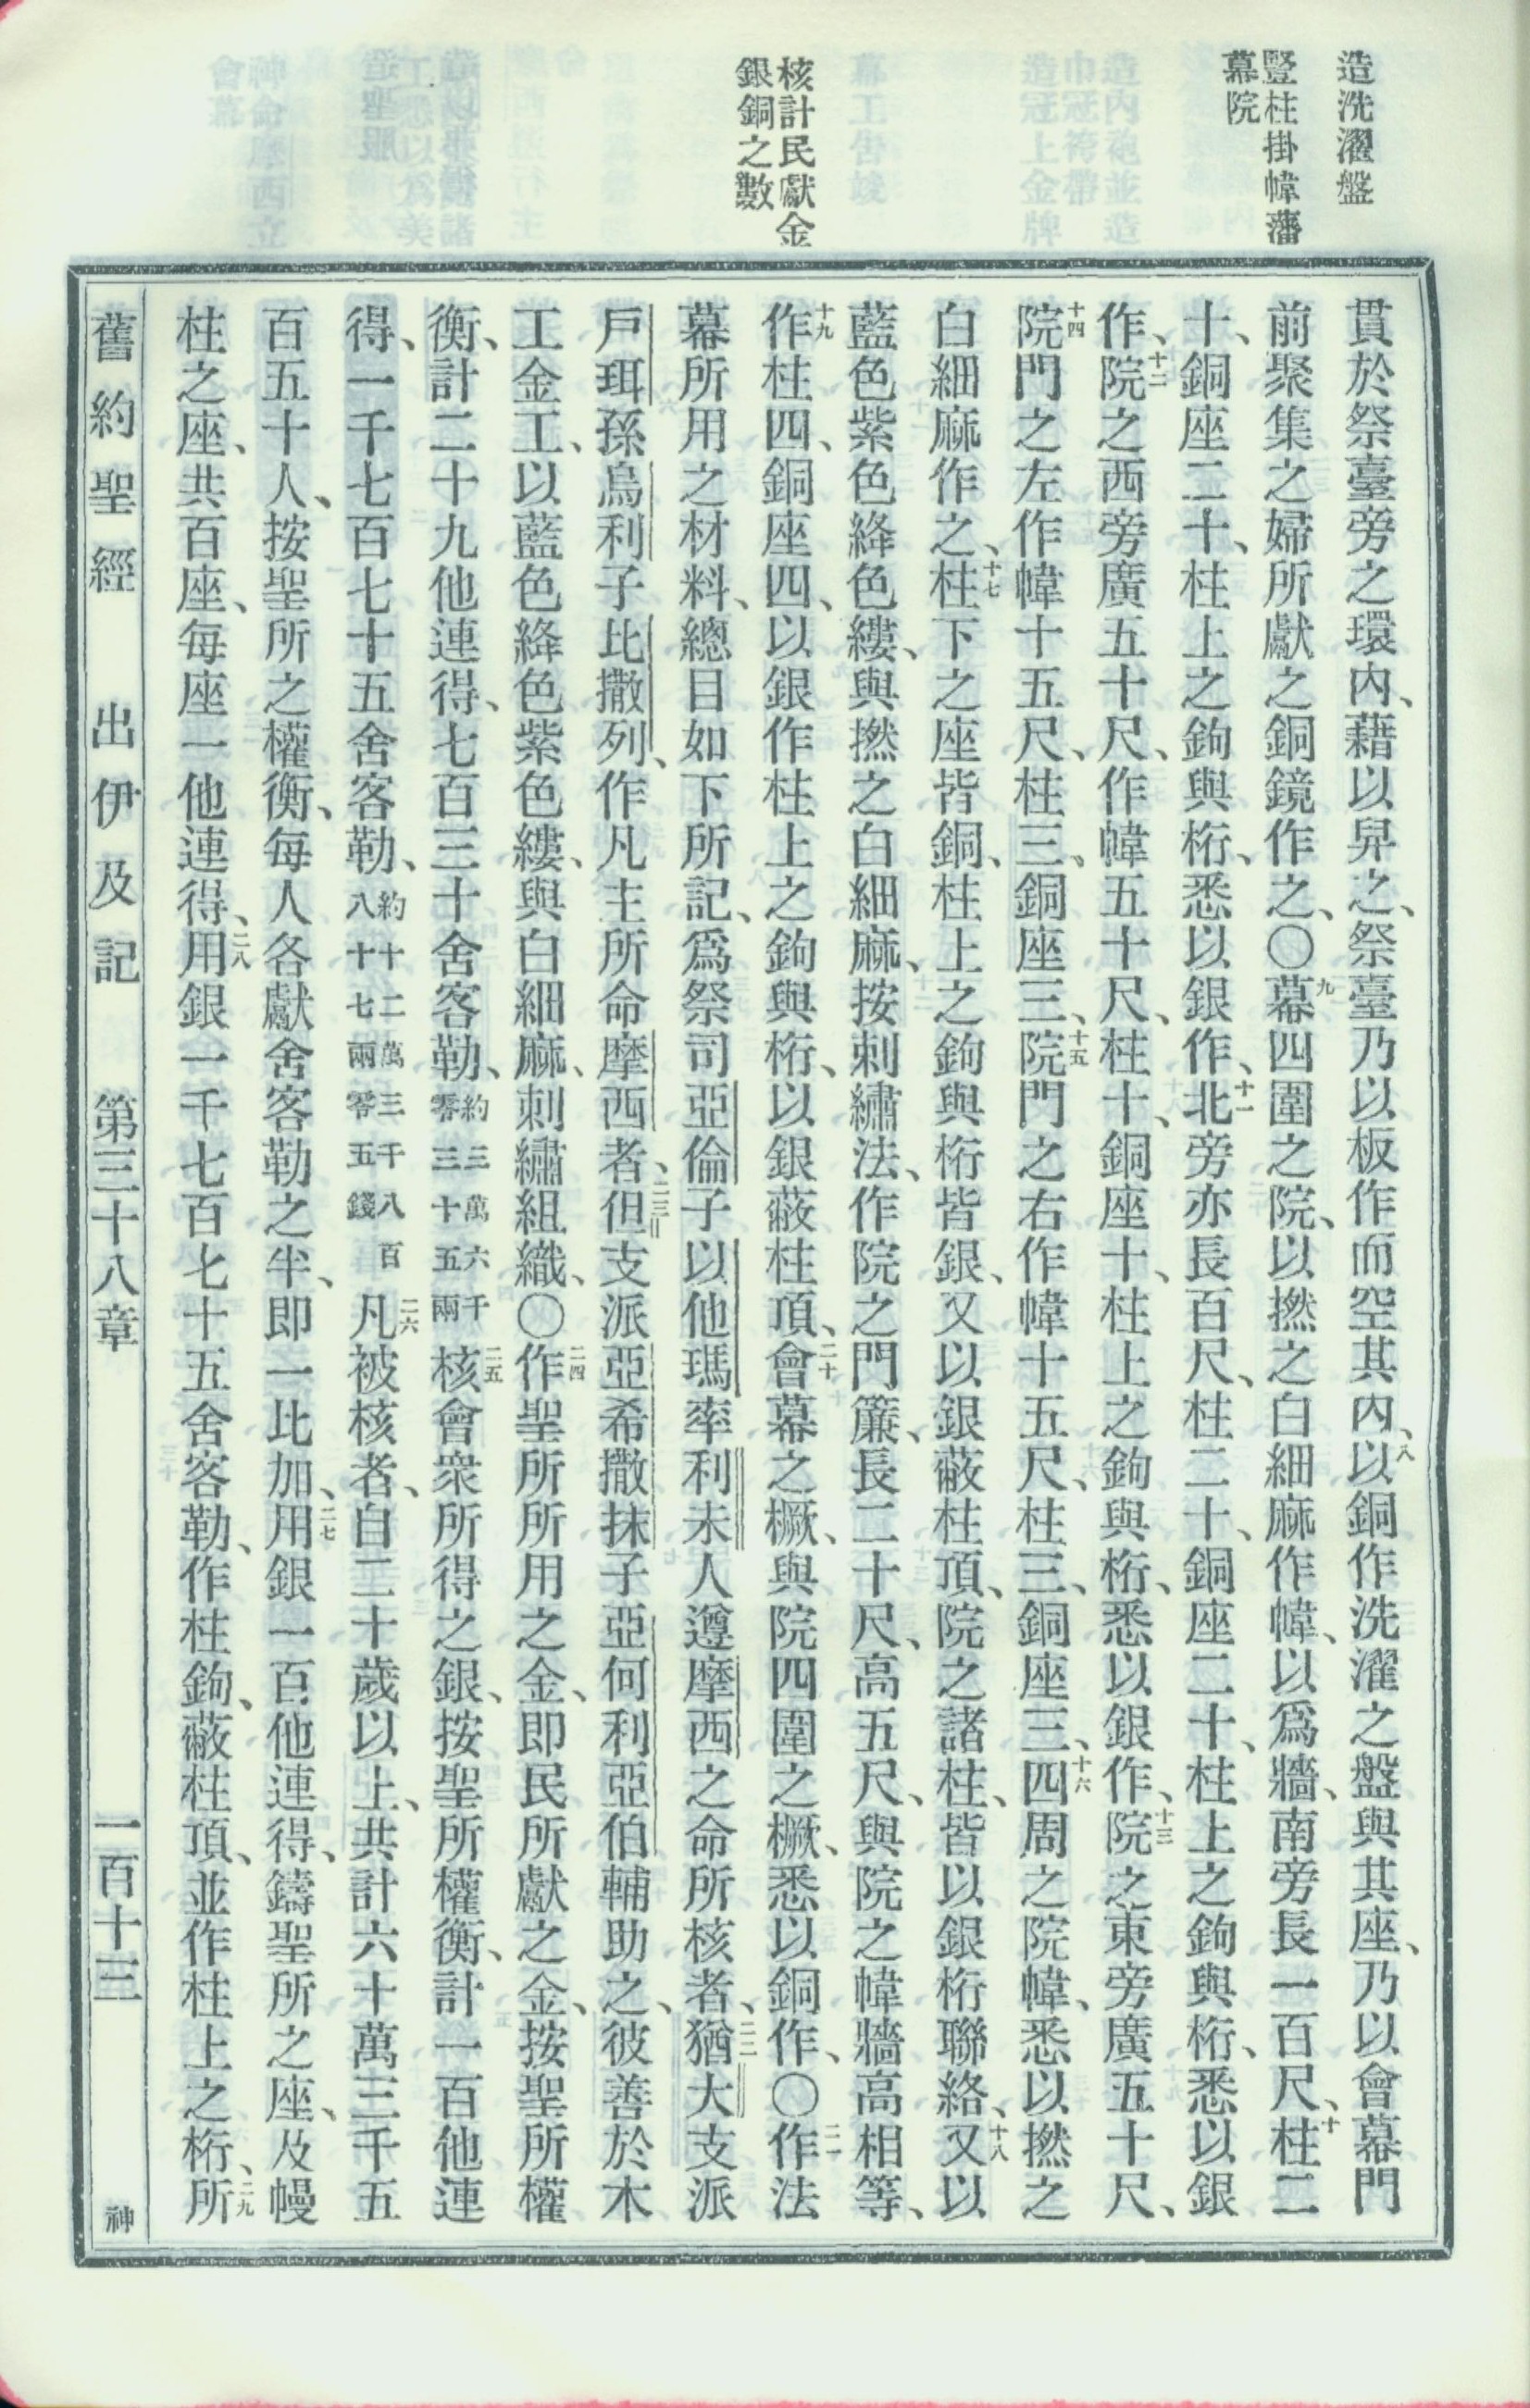 造洗濯盤
豎柱掛幃藩
幕院
核計民獻金
銀銅之數
貫於祭臺旁之環內、藉以舁之、祭臺乃以板作而空其內、八以銅作洗濯之盤與其座、乃以會幕門
前聚集之婦所獻之銅鏡作之、〇九幕四圍之院、以撚之白細麻作幃、以爲牆、南旁長一百尺、十柱二
十、銅座二十、柱上之鉤與桁、悉以銀作、十一北旁亦長百尺、柱二十、銅座二十、柱上之鉤與桁、悉以銀
作、十二院之西旁廣五十尺、作幃五十尺、柱十、銅座十、柱上之鉤與桁、悉以銀作、十三院之東旁廣五十尺、
十四院門之左作幃十五尺、柱三、銅座三、十五院門之右作幃十五尺、柱三、銅座三、十六四周之院幃、悉以撚之
白細麻作之、十七柱下之座皆銅、柱上之鉤與桁皆銀、又以銀蔽柱頂、院之諸柱、皆以銀桁聯絡、十八又以
藍色紫色絳色縷、與撚之白細麻、按刺繡法、作院之門簾、長二十尺、高五尺、與院之幃牆高相等、
十九作柱四、銅座四、以銀作柱上之鉤與桁、以銀蔽柱頂、二十會幕之橛、與院四圍之橛、悉以銅作、〇二一作法
幕所用之材料、總目如下所記、爲祭司亞倫子以他瑪率利未人遵摩西之命所核者、二二猶大支派
戶珥孫烏利子比撒列、作凡主所命摩西者、二三但支派亞希撒抹子亞何利亞伯輔助之、彼善於木
工金工、以藍色絳色紫色縷、與白細麻、刺繡組織、〇二四作聖所所用之金、即民所獻之金、按聖所權
衡、計二十九他連得、七百三十舍客勒、約三萬六千零三十五兩二五核會衆所得之銀、按聖所權衡、計一百他連
得、一千七百七十五舍客勒、約十二萬三千八百八十七兩零五錢二六凡被核者、自二十歲以上、共計六十萬三千五
百五十人、按聖所之權衡、每人各獻舍客勒之半、即一比加、二七用銀一百他連得、鑄聖所之座、及幔
柱之座、共百座、每座一他連得、二八用銀一千七百七十五舍客勒、作柱鉤、蔽柱頂、並作柱上之桁、二九所
舊約聖經　出伊及記　第三十八章　一百十三　神